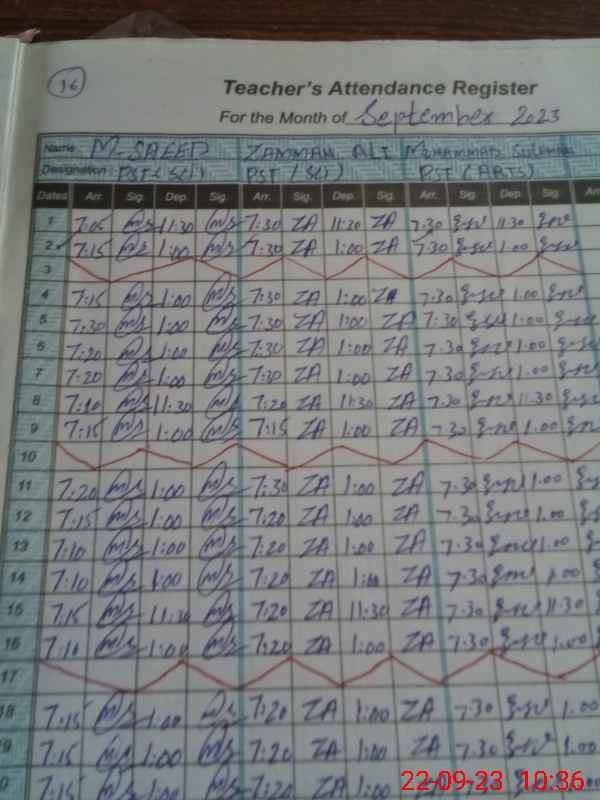 16
Teacher's Attendance Register
For the Month of September 2023
Name M-SAEED ZAMMAN ALI MUHAMMAD Suleman
Designation PST(SCI) PST (SCI) PST (ARTS)
Dates Arr. Sig. Dep. Sig. Arr. Sig. Dep. Sig. Arr. Sig. Dep. Sig. Arr
1 7:05 11:30 7:30 ZA 11:30 ZA 7.30 11.30
2 7:15 1:00 7:30 ZA 1:00 ZA 7.30 1.00
3
4 7:15 1:00 7:30 ZA 1:00 ZA 7.30 1.00
5 7:30 1:00 7:30 ZA 1:00 ZA 7.30 1.00
6 7:20 1:00 7:30 ZA 1:00 ZA 7.30 1.00
7 7:20 1:00 7:30 ZA 1:00 ZA 7.30 1.00
8 7:10 11:30 7:20 ZA 11:30 ZA 7.30 11.30
9 7:15 1:00 7:15 ZA 1:00 ZA 7.30 1.00
10
11 7:20 1:00 7:30 ZA 1:00 ZA 7.30 1.00
12 7:15 1:00 7:20 ZA 1:00 ZA 7.30 1.00
13 7:10 1:00 7:20 ZA 1:00 ZA 7.30 1.00
14 7:10 1:00 7:20 ZA 1:00 ZA 7.30 1.00
15 7:15 11:30 7:20 ZA 11:30 ZA 7.30 11.30
16 7:10 1:00 7:20 ZA 1:00 ZA 7.30 1.00
17
18 7:15 1:00 7:20 ZA 1:00 ZA 7.30 1.00
9 7:15 1:00 7:20 ZA 1:00 ZA 7.30 1.00
0 7:15 1:00 7:20 ZA 1:00
22-09-23 10:36